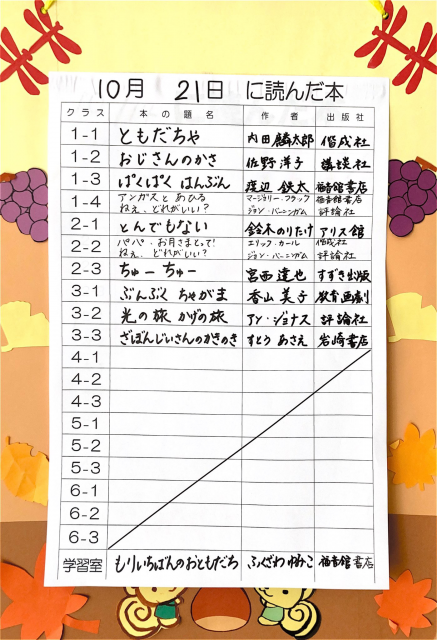 10月 21日 に読んだ本
クラス 本の題名 作者 出版社
1-1 ともだちや 内田麟太郎 偕成社
1-2 おじさんのかさ 佐野洋子 講談社
1-3 ぱくぱく はんぶん 渡辺鉄太 福音館書店
1-4 アンガスとあひる マージョリー・フラック 福音館書店
ねえ、どれがいい? ジョン・バーニンガム 評論社
2-1 とんでもない 鈴木のりたけ アリス館
2-2 パパ・お月さまとって! エリック・カール 偕成社
ねえ、どれがいい? ジョン・バーニンガム 評論社
2-3 ちゅーちゅー 宮西達也 すずき出版
3-1 ぶんぶく ちゃがま 香山美子 教育画劇
3-2 光の旅 かげの旅 アン・ジョナス 評論社
3-3 ざぼんじいさんのかきのき すとうあさえ 岩崎書店
4-1
4-2
4-3
5-1
5-2
5-3
6-1
6-2
6-3
学習室 もりいちばんのおともだち ふくざわゆみこ 福音館書店